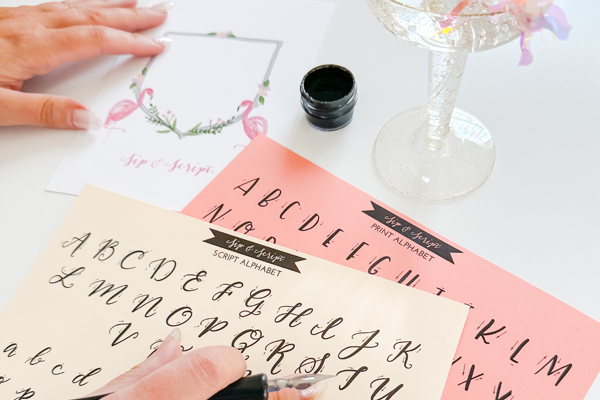 Sip & Script
Sip & Script
PRINT ALPHABET
A B C D E F G H
N O
K L M
X Y
Sip & Script
SCRIPT ALPHABET
A B C D E F G H I J K
L M N O P Q R S T U
V
a b c d
p